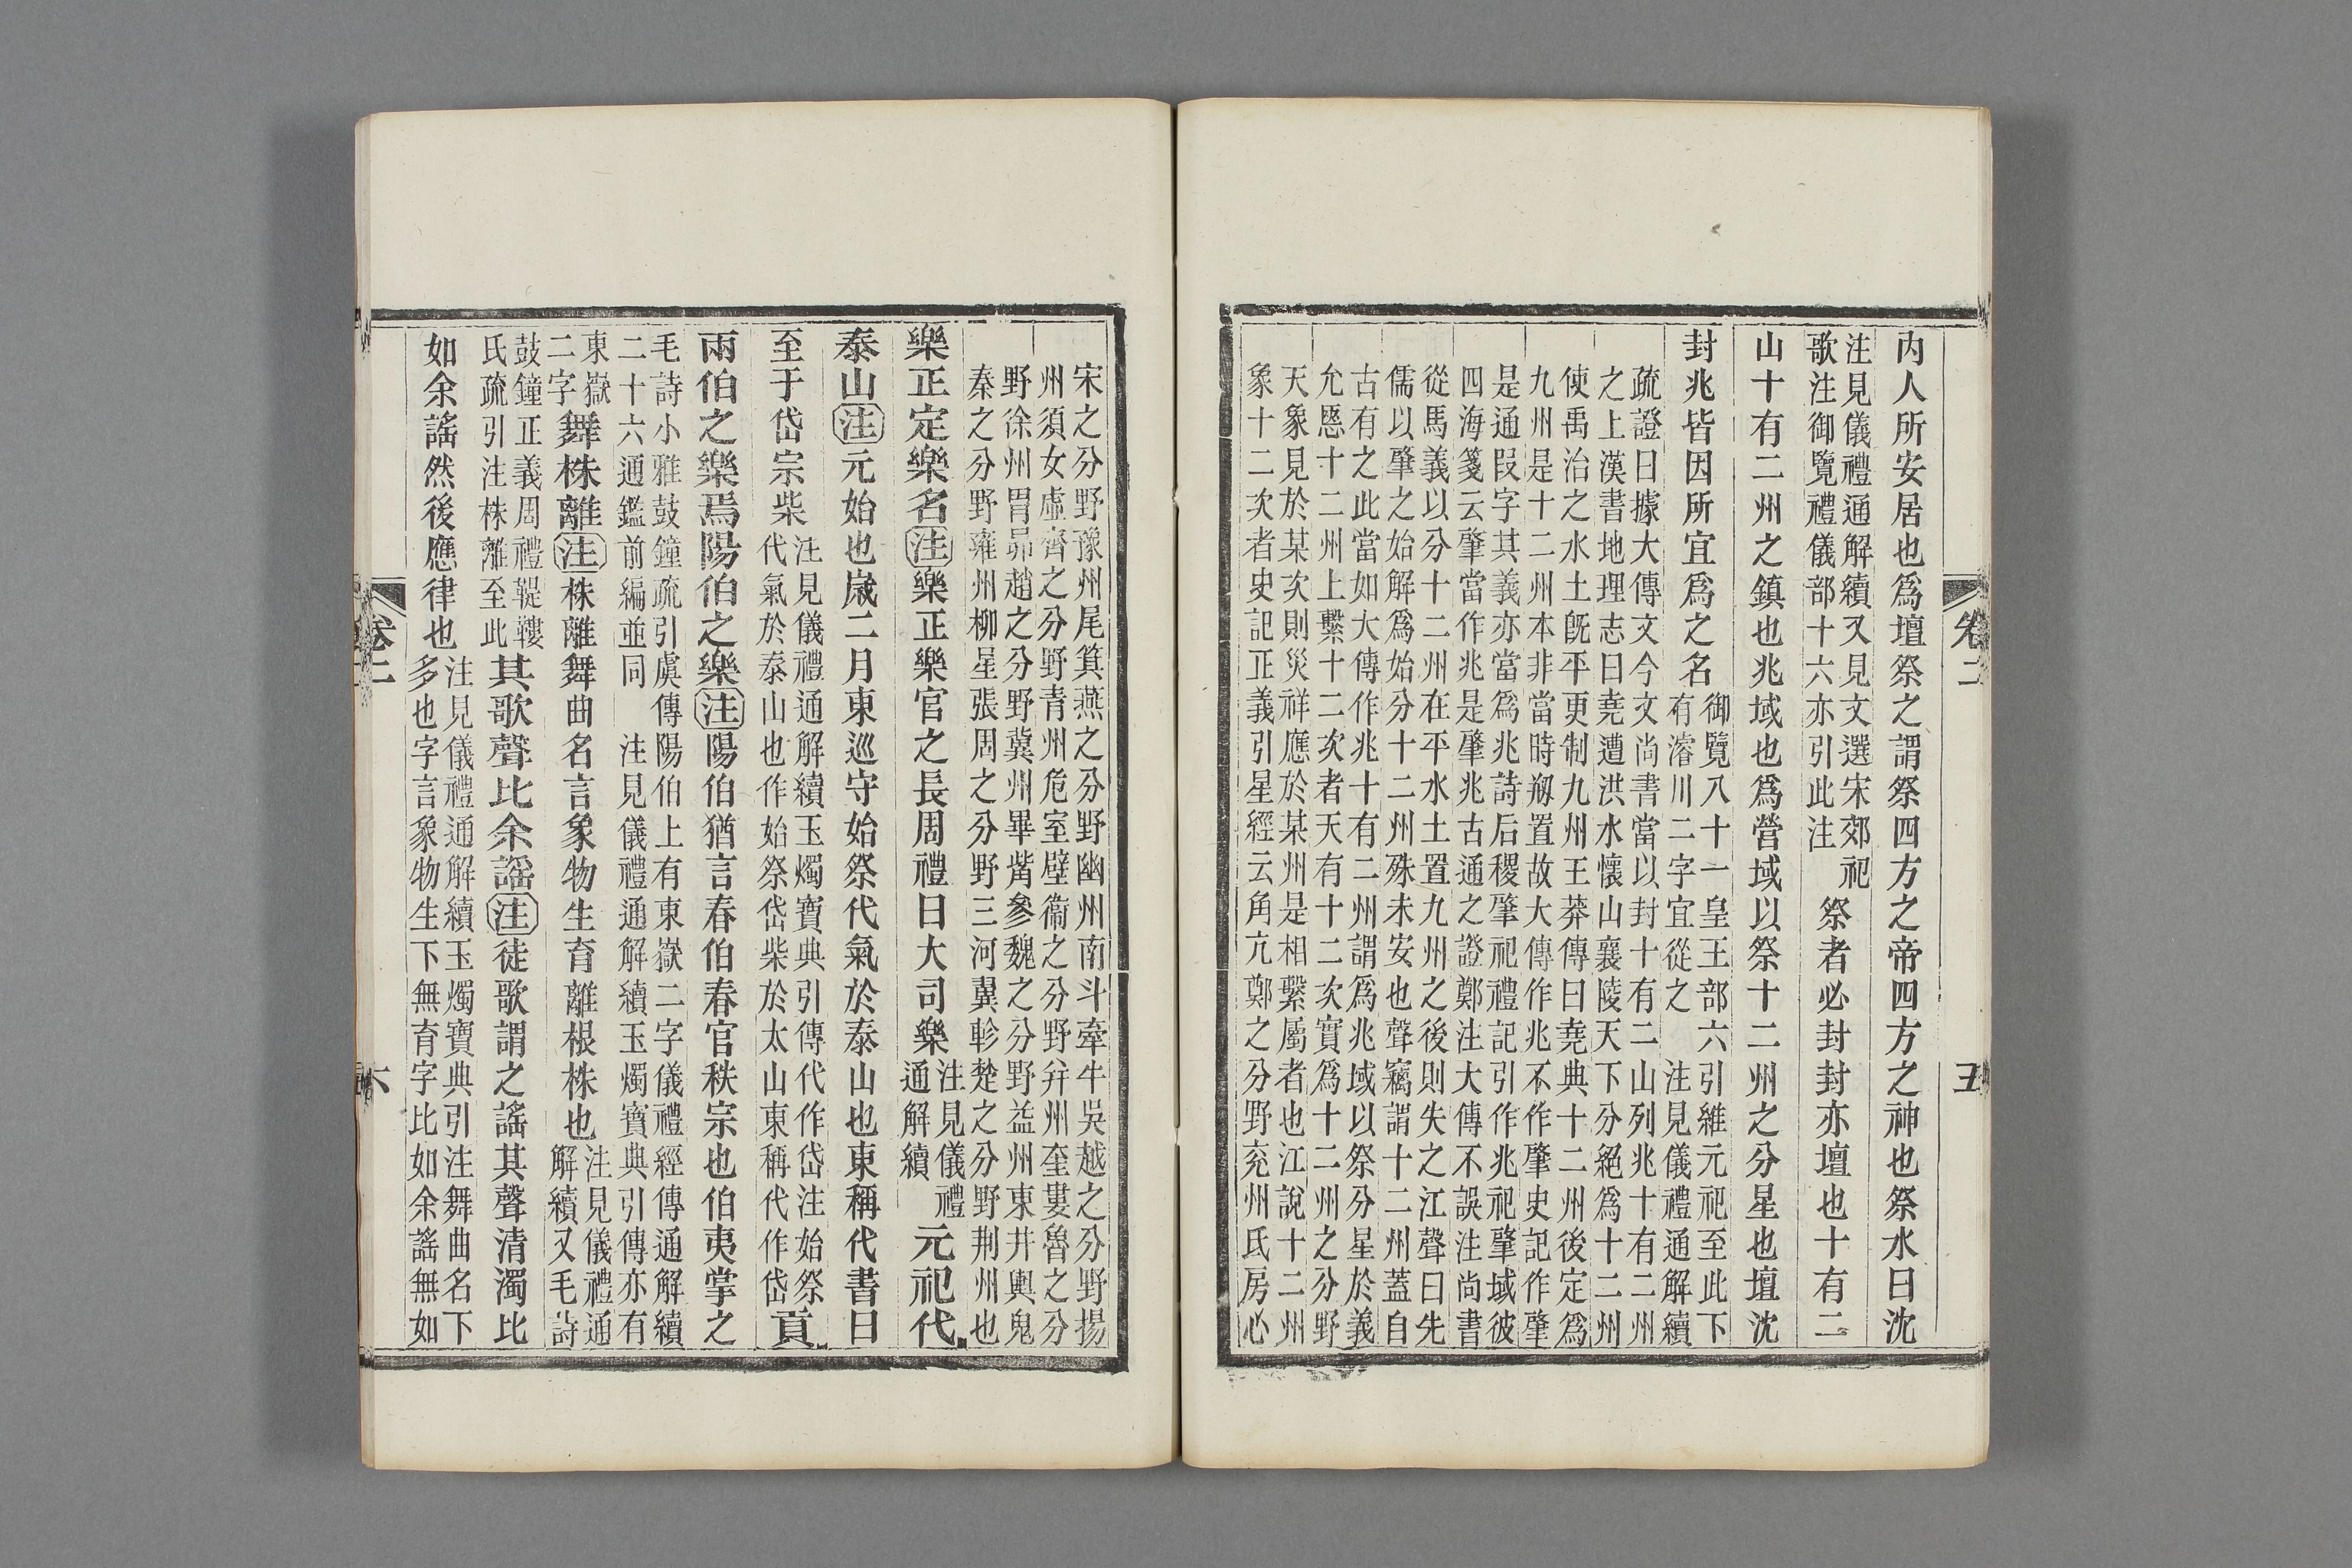 内人所安居也爲壇祭之謂祭四方之帝四方之神也祭水曰沈
注見儀禮通解續又見文選宋郊祀
歌注御覽禮儀部十六亦引此注
祭者必封封亦壇也十有二
山十有二州之鎮也兆域也爲營域以祭十二州之分星也壇沈
封兆皆因所宜爲之名
御覽八十一皇王部六引維元祀至此下
有濬川二字宜從之 注見儀禮通解續
疏證曰據大傳文今文尚書當以封十有二山列兆十有二州
之上漢書地理志曰堯遭洪水懷山襄陵天下分絕爲十二州
使禹治之水土既平更制九州王莽傳曰堯典十二州後定爲
九州是十二州本非當時剏置故大傳作兆不作肇史記作肇
是通叚字其義亦當爲兆詩后稷肇祀禮記引作兆祀肇域彼
四海箋云肇當作兆是肇兆古通之證鄭注大傳不誤注尚書
從馬義以分十二州在平水土置九州之後則失之江聲曰先
儒以肇之始解爲始分十二州殊未安也聲竊謂十二州蓋自
古有之此當如大傳作兆十有二州謂爲兆域以祭分星於義
允愜十二州上繫十二次者天有十二次實爲十二州之分野
天象見於某次則災祥應於某州是相繫屬者也江說十二州
象十二次者史記正義引星經云角亢鄭之分野兗州氐房心
卷二
五
宋之分野豫州尾箕燕之分野幽州南斗牽牛吳越之分野揚
州須女虛齊之分野青州危室壁衞之分野并州奎婁魯之分
野徐州胃昴趙之分野冀州畢觜參魏之分野益州東井輿鬼
秦之分野雍州柳星張周之分野三河翼軫楚之分野荆州也
樂正定樂名注樂正樂官之長周禮曰大司樂
注見儀禮
通解續
元祀代
泰山注元始也歲二月東巡守始祭代氣於泰山也東稱代書曰
至于岱宗柴
注見儀禮通解續玉燭寶典引傳代作岱注始祭
代氣於泰山也作始祭岱柴於太山東稱代作岱
貢
兩伯之樂焉陽伯之樂注陽伯猶言春伯春官秩宗也伯夷掌之
毛詩小雅鼓鐘疏引虞傳陽伯上有東嶽二字儀禮經傳通解續
二十六通鑑前編並同 注見儀禮通解續玉燭寶典引傳亦有
東嶽
二字
舞株離注株離舞曲名言象物生育離根株也
注見儀禮通
解續又毛詩
鼓鐘正義周禮鞮鞻
氏疏引注株離至此
其歌聲比余謠注徒歌謂之謠其聲清濁比
如余謠然後應律也
注見儀禮通解續玉燭寶典引注舞曲名下
多也字言象物生下無育字比如余謠無如
卷二
六